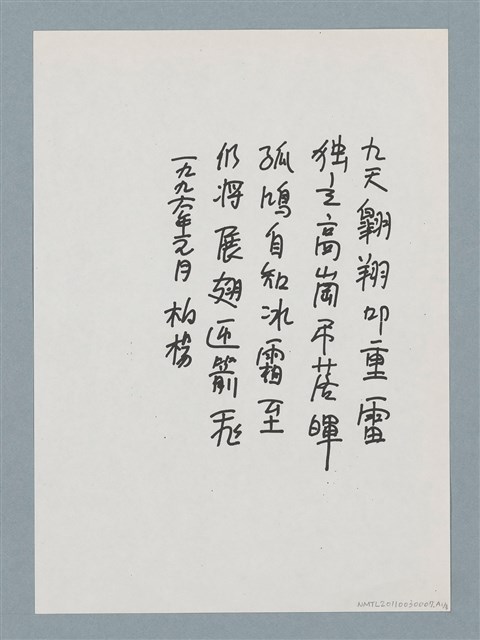 九天翱翔叩重雷
独立高崗吊落暉
孤鴻自知冰霜至
仍将展翅迎箭飛
一九九六年元月 柏楊
NMTLS0110030007.A